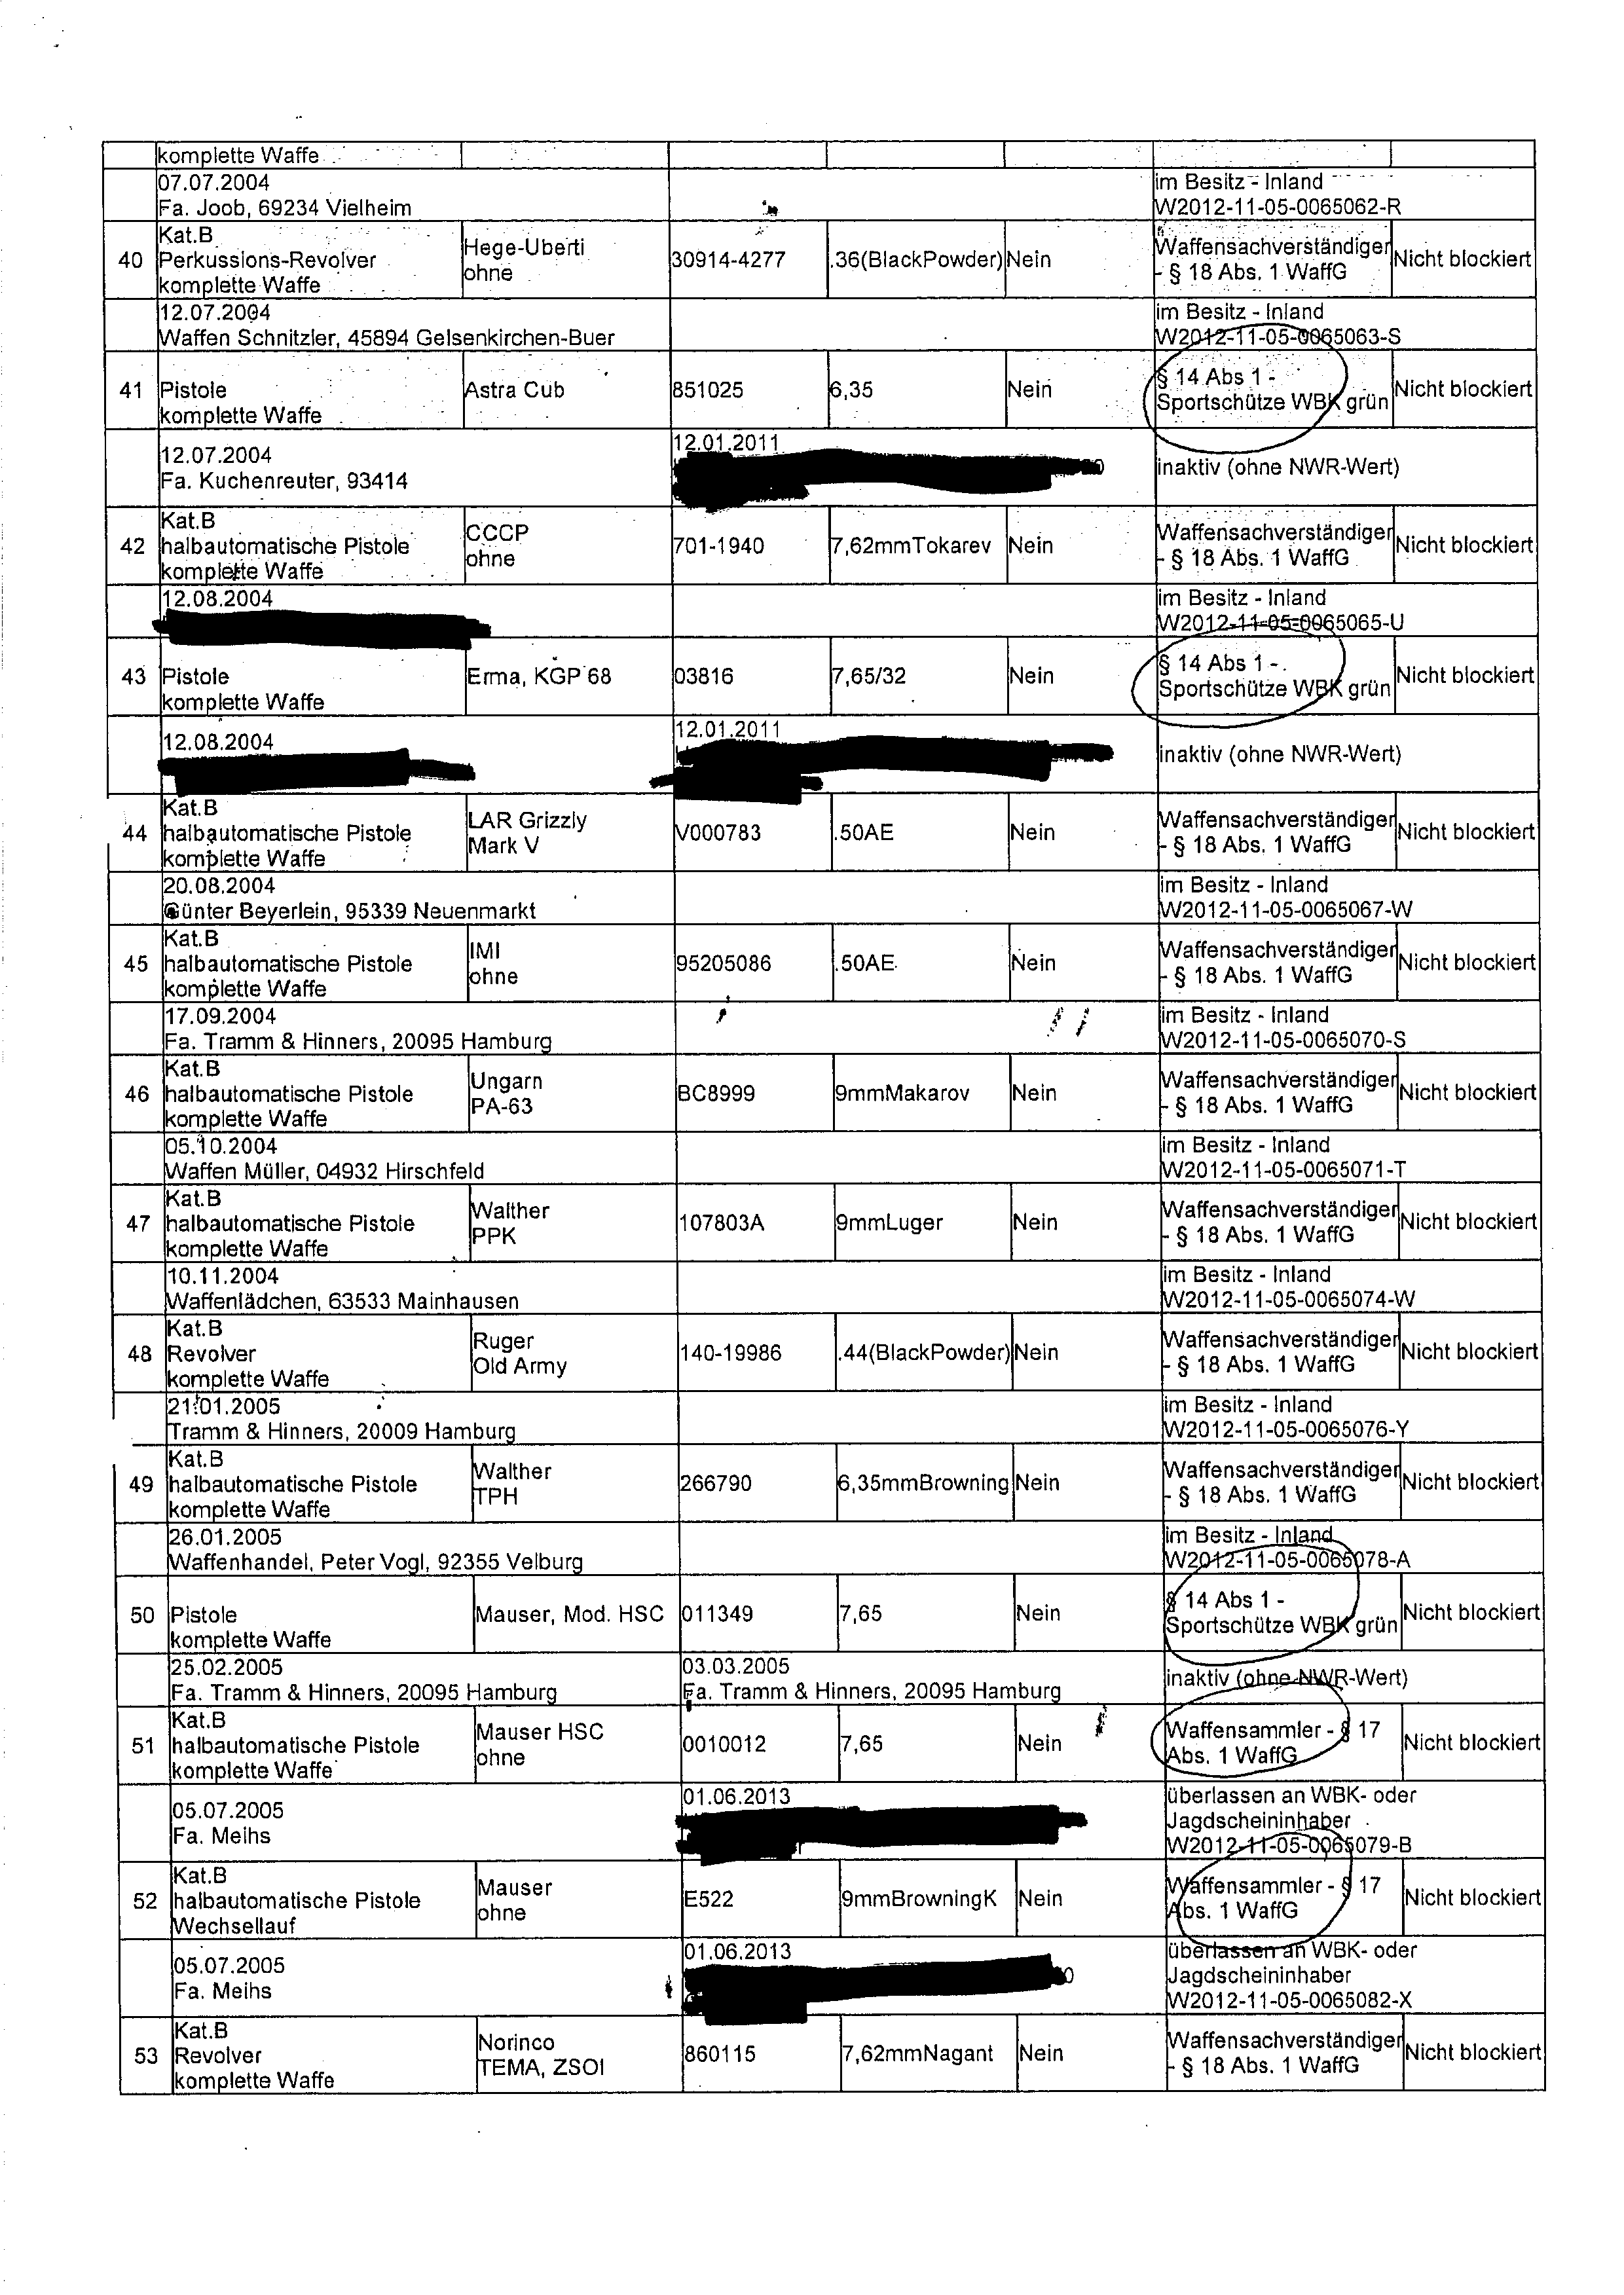 komplette Waffe
07.07.2004
Fa. Joob, 69234 Vielheim
im Besitz - Inland
W2012-11-05-0065062-R
40
Kat.B
Perkussions-Revolver
komplette Waffe
Hege-Uberti
ohne
30914-4277
.36(BlackPowder)
Nein
Waffensachverständiger
- § 18 Abs. 1 WaffG
Nicht blockiert
12.07.2004
Waffen Schnitzler, 45894 Gelsenkirchen-Buer
im Besitz - Inland
W2012-11-05-0065063-S
41
Pistole
komplette Waffe
Astra Cub
851025
6,35
Nein
§ 14 Abs 1 -
Sportschütze WBK grün
Nicht blockiert
12.07.2004
Fa. Kuchenreuter, 93414
12.01.2011
inaktiv (ohne NWR-Wert)
42
Kat.B
halbautomatische Pistole
komplette Waffe
CCCP
ohne
701-1940
7,62mmTokarev
Nein
Waffensachverständiger
- § 18 Abs. 1 WaffG
Nicht blockiert
12.08.2004
im Besitz - Inland
W2012-11-05-0065065-U
43
Pistole
komplette Waffe
Erma, KGP 68
03816
7,65/32
Nein
§ 14 Abs 1 -
Sportschütze WBK grün
Nicht blockiert
12.08.2004
12.01.2011
inaktiv (ohne NWR-Wert)
44
Kat.B
halbautomatische Pistole
komplette Waffe
LAR Grizzly
Mark V
V000783
.50AE
Nein
Waffensachverständiger
- § 18 Abs. 1 WaffG
Nicht blockiert
20.08.2004
Günter Beyerlein, 95339 Neuenmarkt
im Besitz - Inland
W2012-11-05-0065067-W
45
Kat.B
halbautomatische Pistole
komplette Waffe
IMI
ohne
95205086
.50AE
Nein
Waffensachverständiger
- § 18 Abs. 1 WaffG
Nicht blockiert
17.09.2004
Fa. Tramm & Hinners, 20095 Hamburg
im Besitz - Inland
W2012-11-05-0065070-S
46
Kat.B
halbautomatische Pistole
komplette Waffe
Ungarn
PA-63
BC8999
9mmMakarov
Nein
Waffensachverständiger
- § 18 Abs. 1 WaffG
Nicht blockiert
05.10.2004
Waffen Müller, 04932 Hirschfeld
im Besitz - Inland
W2012-11-05-0065071-T
47
Kat.B
halbautomatische Pistole
komplette Waffe
Walther
PPK
107803A
9mmLuger
Nein
Waffensachverständiger
- § 18 Abs. 1 WaffG
Nicht blockiert
10.11.2004
Waffenlädchen, 63533 Mainhausen
im Besitz - Inland
W2012-11-05-0065074-W
48
Kat.B
Revolver
komplette Waffe
Ruger
Old Army
140-19986
.44(BlackPowder)
Nein
Waffensachverständiger
- § 18 Abs. 1 WaffG
Nicht blockiert
21.01.2005
Tramm & Hinners, 20009 Hamburg
im Besitz - Inland
W2012-11-05-0065076-Y
49
Kat.B
halbautomatische Pistole
komplette Waffe
Walther
TPH
266790
6,35mmBrowning
Nein
Waffensachverständiger
- § 18 Abs. 1 WaffG
Nicht blockiert
26.01.2005
Waffenhandel, Peter Vogl, 92355 Velburg
im Besitz - Inland
W2012-11-05-0065078-A
50
Pistole
komplette Waffe
Mauser, Mod. HSC
011349
7,65
Nein
§ 14 Abs 1 -
Sportschütze WBK grün
Nicht blockiert
25.02.2005
Fa. Tramm & Hinners, 20095 Hamburg
03.03.2005
Fa. Tramm & Hinners, 20095 Hamburg
inaktiv (ohne NWR-Wert)
51
Kat.B
halbautomatische Pistole
komplette Waffe
Mauser HSC
ohne
0010012
7,65
Nein
Waffensammler - § 17
Abs. 1 WaffG
Nicht blockiert
05.07.2005
Fa. Meihs
01.06.2013
überlassen an WBK- oder
Jagdscheininhaber
W2012-11-05-0065079-B
52
Kat.B
halbautomatische Pistole
Wechsellauf
Mauser
ohne
E522
9mmBrowningK
Nein
Waffensammler - § 17
Abs. 1 WaffG
Nicht blockiert
05.07.2005
Fa. Meihs
01.06.2013
überlassen an WBK- oder
Jagdscheininhaber
W2012-11-05-0065082-X
53
Kat.B
Revolver
komplette Waffe
Norinco
TEMA, ZSOI
860115
7,62mmNagant
Nein
Waffensachverständiger
- § 18 Abs. 1 WaffG
Nicht blockiert